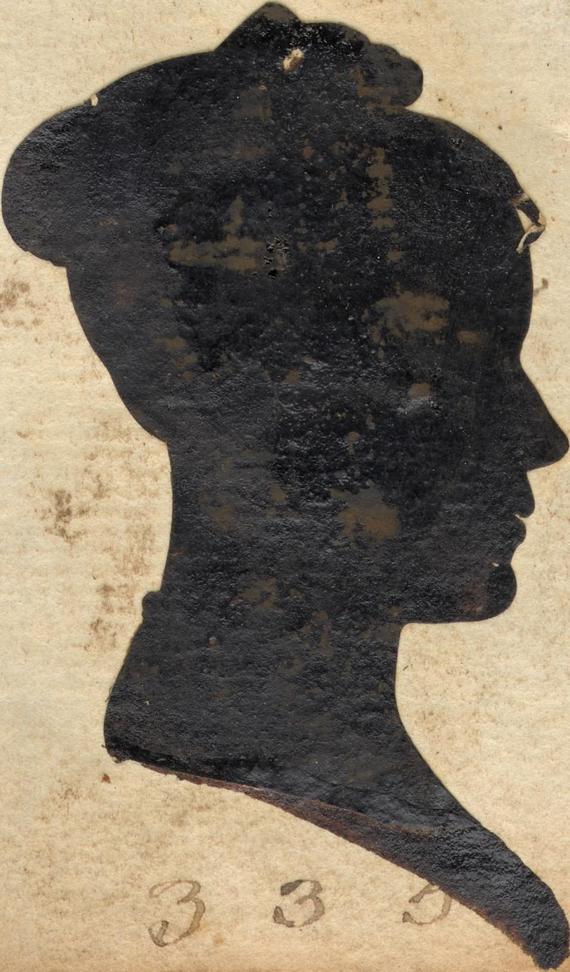 3 3 5